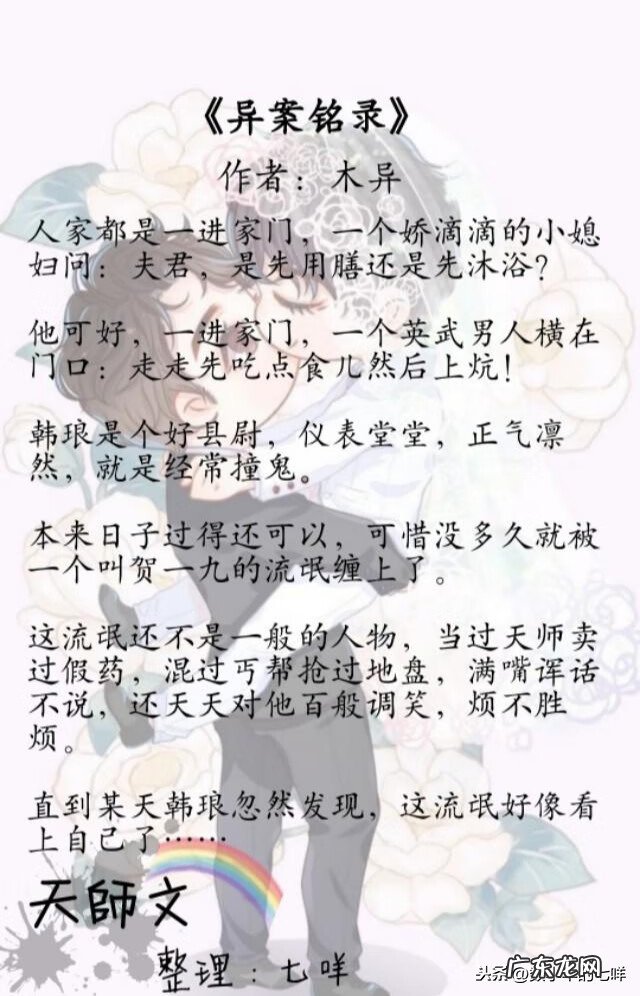 《异案铭录》
作者：木异
人家都是一进家门，一个娇滴滴的小媳
妇问：夫君，是先用膳还是先沐浴？
他可好，一进家门，一个英武男人横在
门口：走走先吃点食儿然后上炕！
韩琅是个好县尉，仪表堂堂，正气凛
然，就是经常撞鬼。
本来日子过得还可以，可惜没多久就被
一个叫贺一九的流氓缠上了。
这流氓还不是一般的人物，当过天师卖
过假药，混过丐帮抢过地盘，满嘴诨话
不说，还天天对他百般调笑，烦不胜
烦。
直到某天韩琅忽然发现，这流氓好像看
上自己了……
天師文
整理：七咩
头条
广东龙网
的七咩